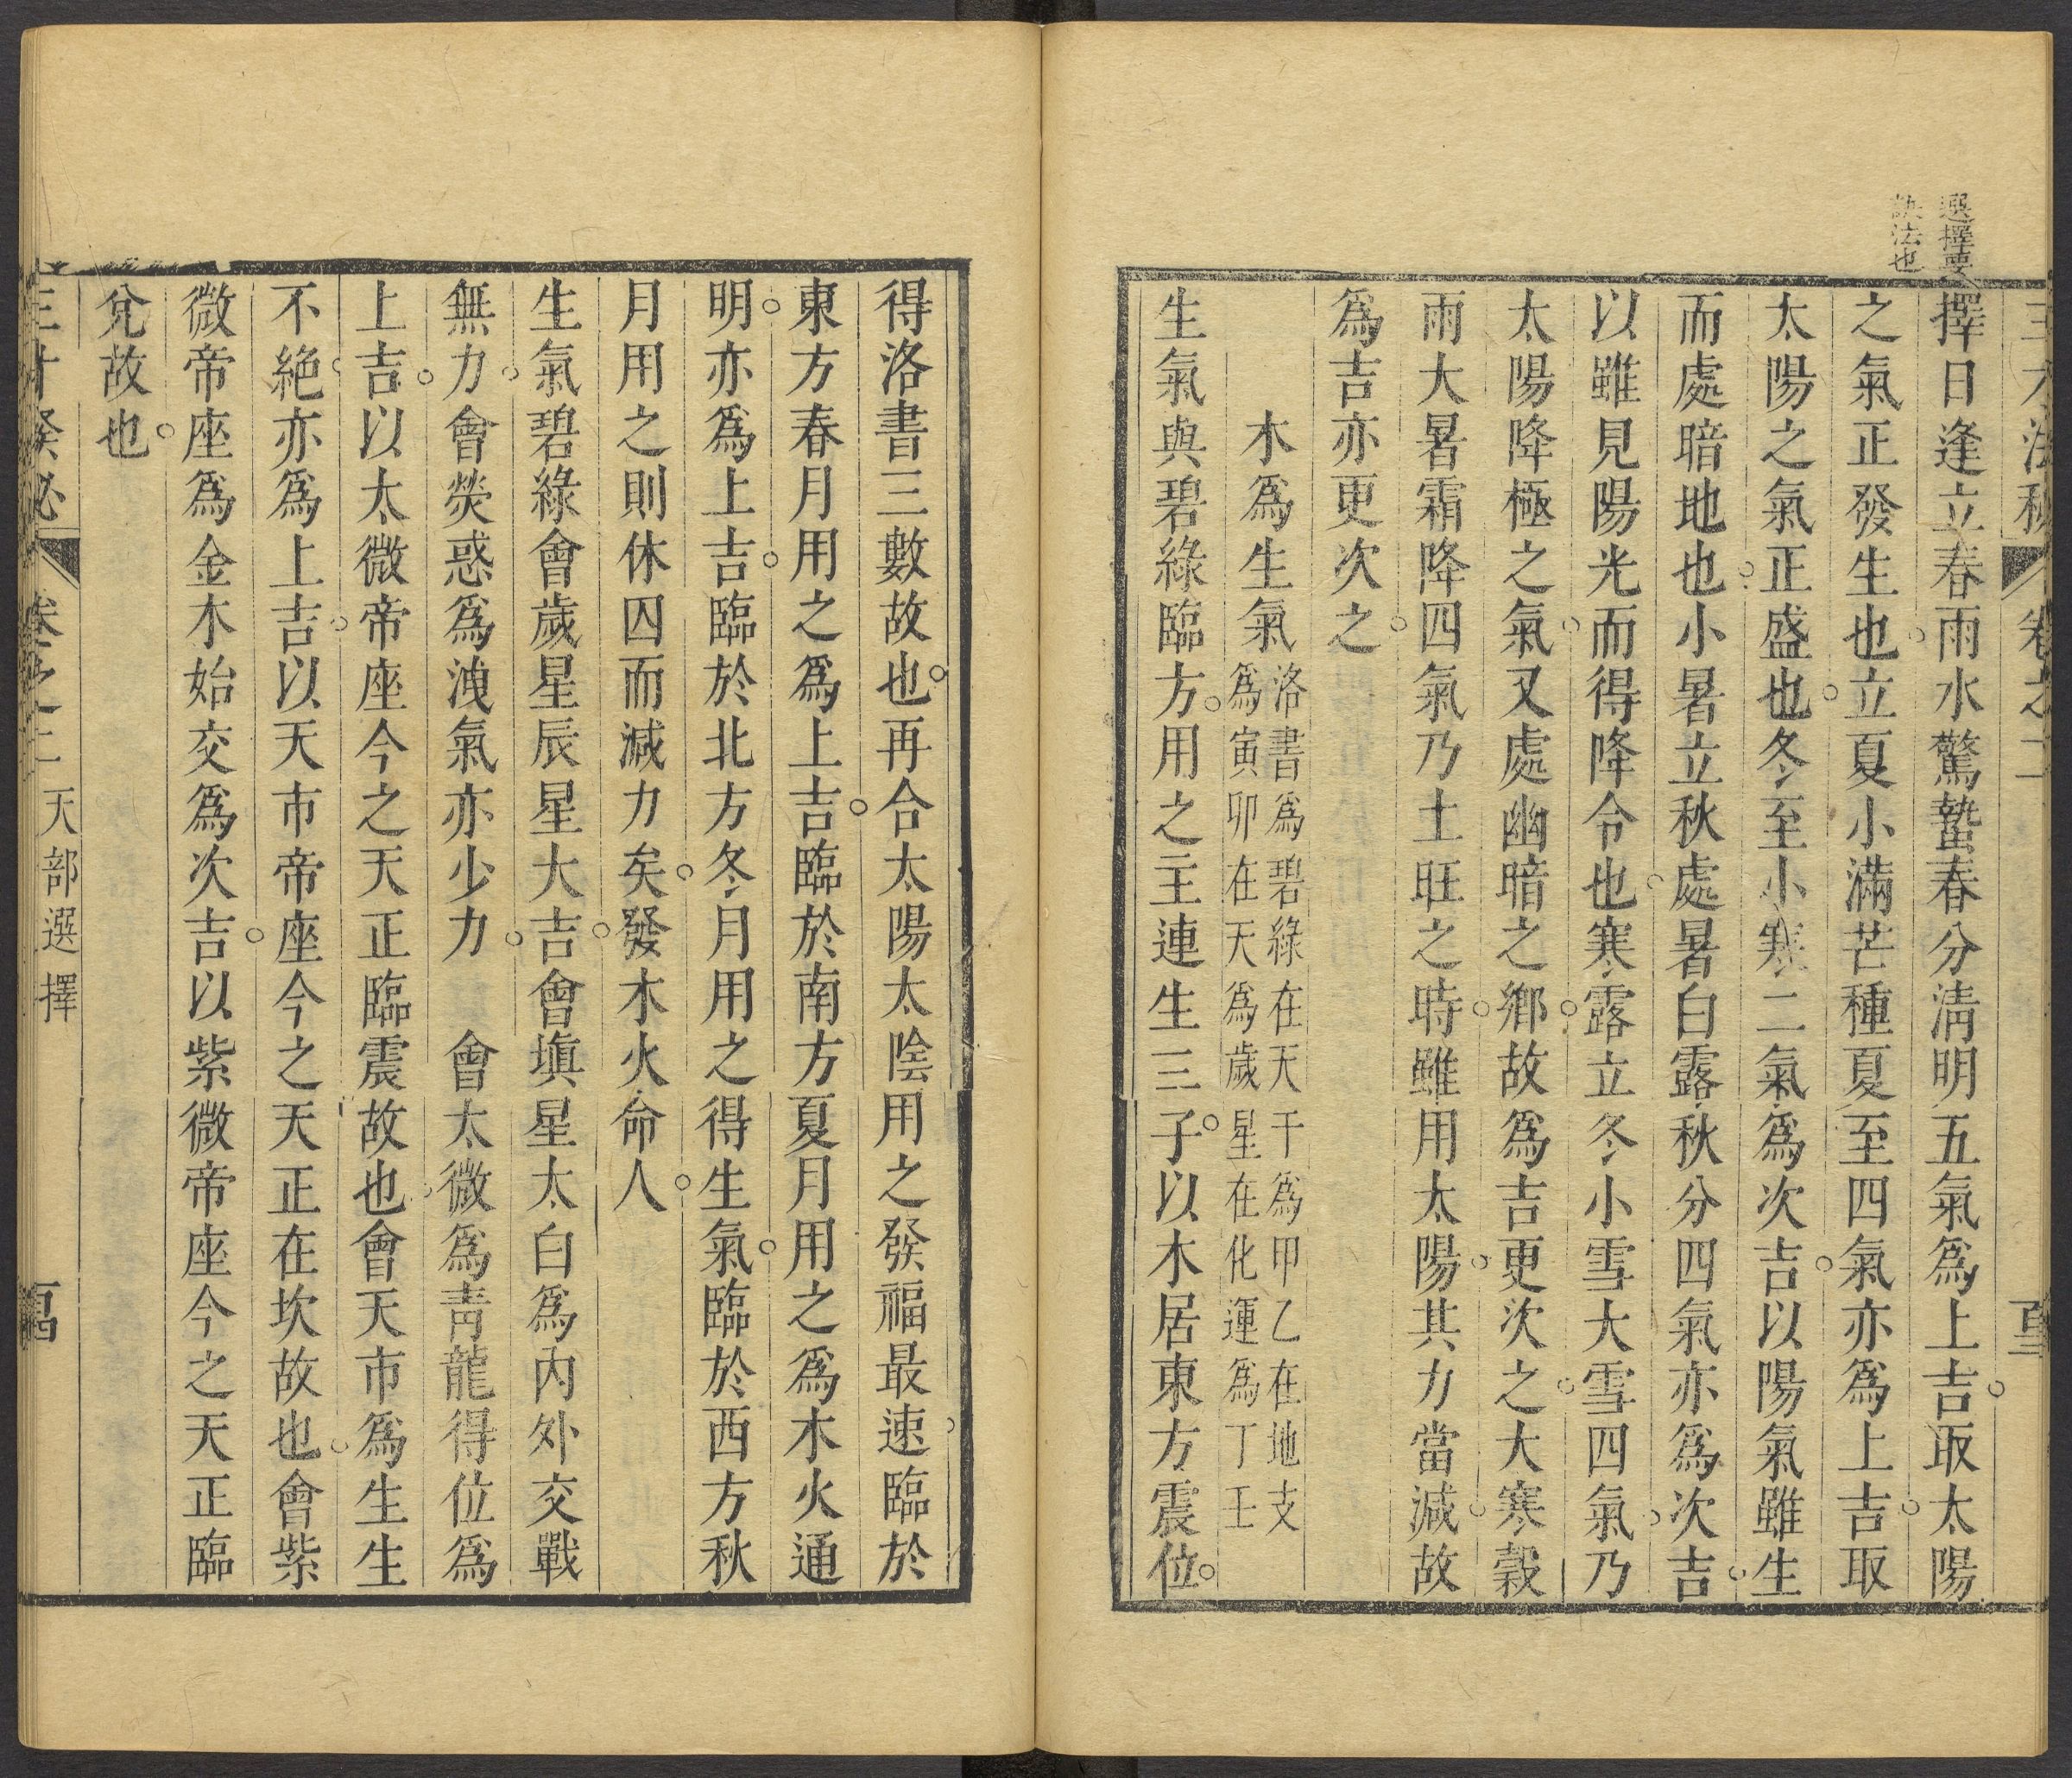 選擇要
訣法也
卷之二
擇日逢立春雨水驚蟄春分淸明五氣爲上吉取太陽
之氣正發生也立夏小滿芒種夏至四氣亦爲上吉取
太陽之氣正盛也冬至小寒二氣爲次吉以陽氣雖生
而處暗地也小暑立秋處暑白露秋分四氣亦爲次吉
以雖見陽光而得降令也寒露立冬小雪大雪四氣乃
太陽降極之氣又處幽暗之鄉故爲吉更次之大寒穀
雨大暑霜降四氣乃土旺之時雖用太陽其力當減故
爲吉亦更次之
木爲生氣洛書爲碧綠在天干爲甲乙在地支
爲寅卯在天爲歲星在化運爲丁壬
生氣與碧綠臨方用之主連生三子以木居東方震位
得洛書三數故也再合太陽太陰用之發福最速臨於
東方春月用之爲上吉臨於南方夏月用之爲木火通
明亦爲上吉臨於北方冬月用之得生氣臨於西方秋
月用之則休囚而減力矣發木火命人
生氣碧綠會歲星辰星大吉會塡星太白爲內外交戰
無力會熒惑爲洩氣亦少力　會太微爲靑龍得位爲
上吉以太微帝座今之天正臨震故也會天市爲生生
不絕亦爲上吉以天市帝座今之天正在坎故也會紫
微帝座爲金木始交爲次吉以紫微帝座今之天正臨
兌故也
天部選擇